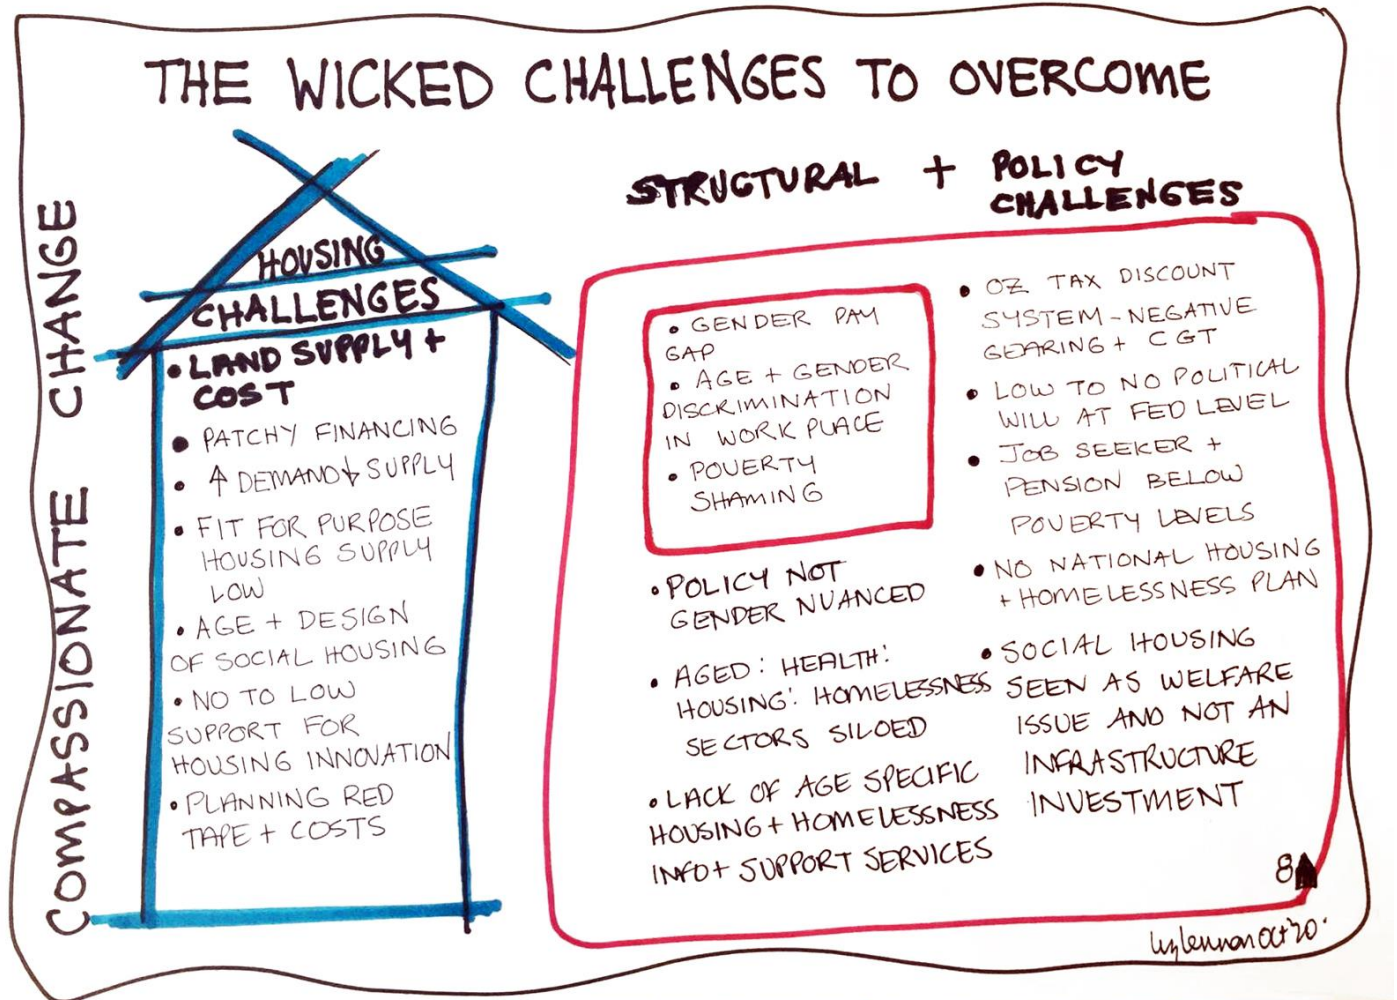 THE WICKED CHALLENGES TO OVERCOME
COMPASSIONATE CHANGE
HOUSING
CHALLENGES
• LAND SUPPLY +
COST
• PATCHY FINANCING
• ↑ DEMAND ↓ SUPPLY
• FIT FOR PURPOSE
HOUSING SUPPLY
LOW
• AGE + DESIGN
OF SOCIAL HOUSING
• NO TO LOW
SUPPORT FOR
HOUSING INNOVATION
• PLANNING RED
TAPE + COSTS
STRUCTURAL + POLICY
CHALLENGES
• GENDER PAY
GAP
• AGE + GENDER
DISCRIMINATION
IN WORK PLACE
• POVERTY
SHAMING
• POLICY NOT
GENDER NUANCED
• AGED: HEALTH:
HOUSING: HOMELESSNESS
SECTORS SILOED
• LACK OF AGE SPECIFIC
HOUSING + HOMELESSNESS
INFO + SUPPORT SERVICES
• OZ TAX DISCOUNT
SYSTEM - NEGATIVE
GEARING + CGT
• LOW TO NO POLITICAL
WILL AT FED LEVEL
• JOB SEEKER +
PENSION BELOW
POVERTY LEVELS
• NO NATIONAL HOUSING
+ HOMELESSNESS PLAN
• SOCIAL HOUSING
SEEN AS WELFARE
ISSUE AND NOT AN
INFRASTRUCTURE
INVESTMENT
8
liz lennon Oct '20